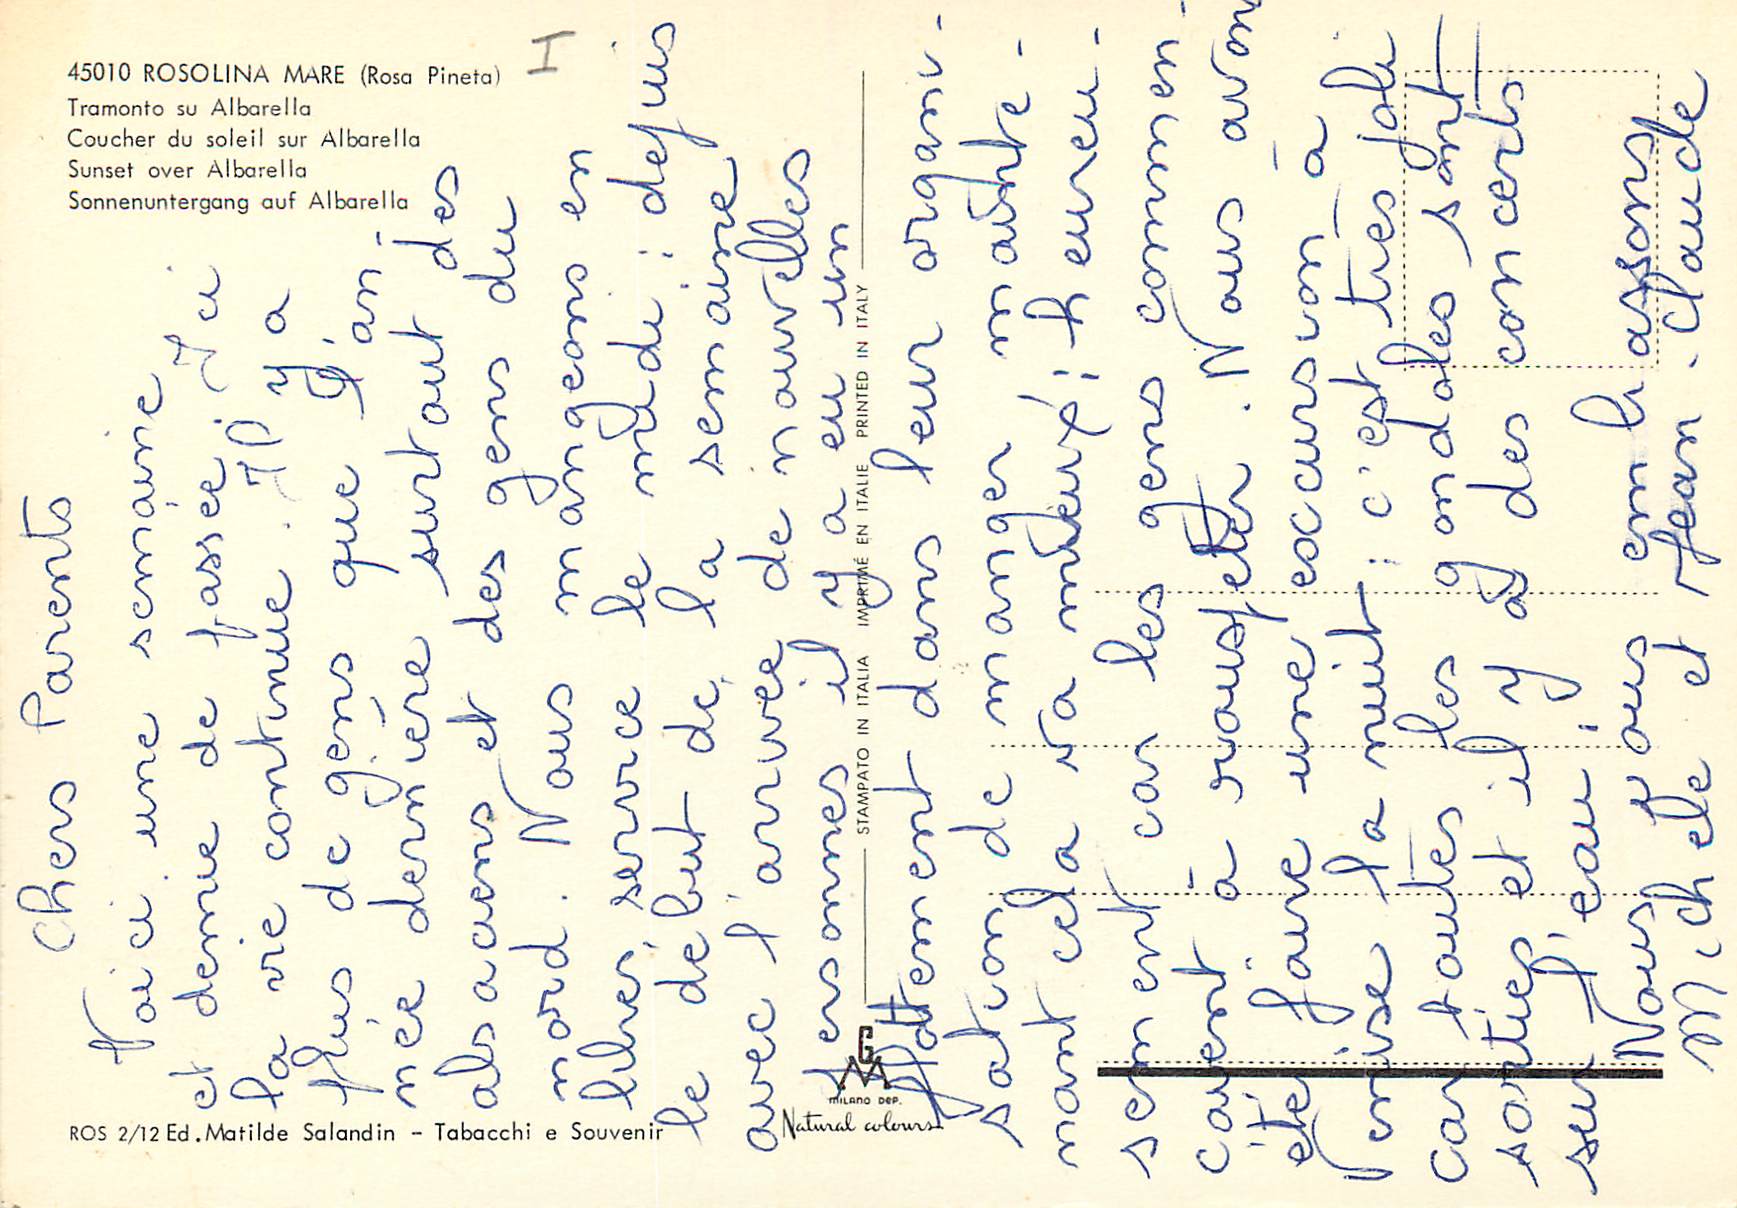 45010 ROSOLINA MARE (Rosa Pineta)
Tramonto su Albarella
Coucher du soleil sur Albarella
Sunset over Albarella
Sonnenuntergang auf Albarella
I
Chers Parents
Voici une semaine
et demie de passée ; Ici
la vie continue. Il y a
plus de gens que l'an-
née dernière surtout des
alsaciens et des gens du
nord. Nous mangeons en
libres service le midi : depuis
le début de la semaine
avec l'arrivée de nouvelles
personnes il y a eu un
flottement dans leur organi-
sation de manger mainte-
nant cela va mieux ; heureu-
sement car les gens commen-
caient à rouspeter. Nous avons
été faire une excursion à
Venise la nuit : c'est très joli
car toutes les gondoles sont
sorties et il y a des concerts
sur l'eau.
Nous vous embrassons
Michele et Jean-Claude
STAMPATO IN ITALIA IMPRIMÉ EN ITALIE PRINTED IN ITALY
MILANO DEP.
Natural colours
ROS 2/12 Ed. Matilde Salandin - Tabacchi e Souvenir